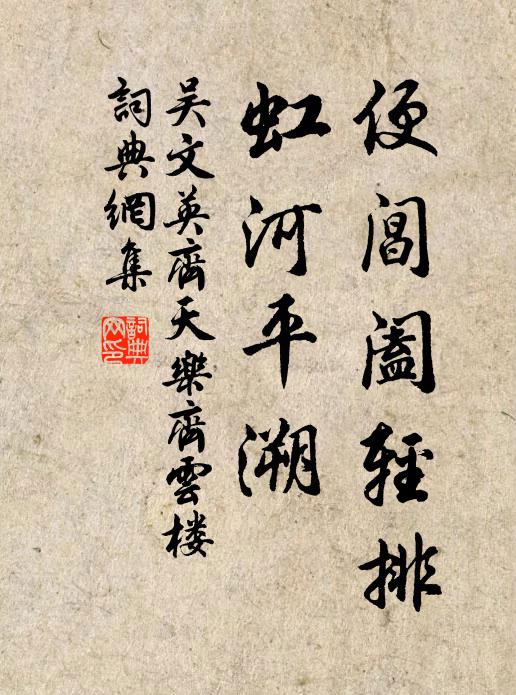 便閶闔輕排
虹河平溯
吴文英齊天樂齊雲楼
詞典網集
詞典網印